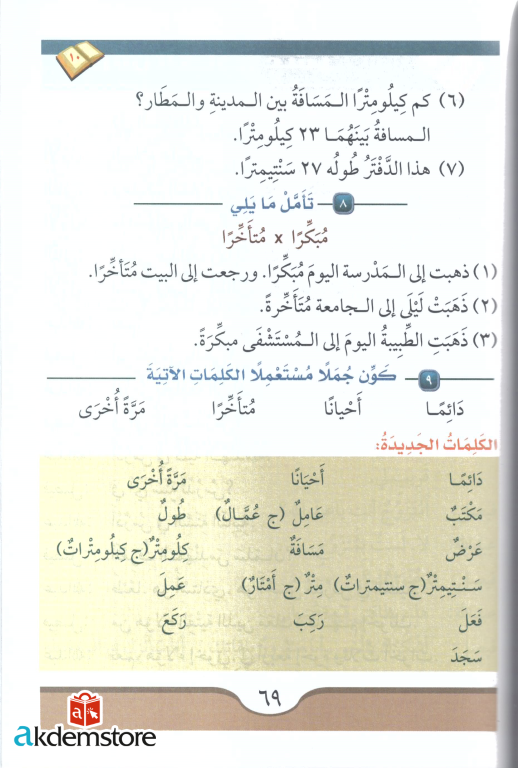 ١٠
(٦) كم كِيلُومِتْرًا الـمَسَافَةُ بين الـمدينةِ والـمَطَار؟
الـمسافةُ بَيْنَهُمَـا ٢٣ كِيلُومِتْرًا.
(٧) هذا الدَّفْتَرُ طُولُه ٢٧ سَنْتِيمِترًا.
٨ تَأَمَّلْ مَا يَلِي
مُبَكِّرًا x مُتَأَخِّرًا
(١) ذهبت إلى الـمَدْرسة اليومَ مُبَكِّرًا. ورجعت إلى البيت مُتَأَخِّرًا.
(٢) ذَهَبَتْ لَيْلَى إلى الـجامعة مُتَأَخِّرةً.
(٣) ذَهَبَتِ الطَّبِيبةُ اليومَ إلى الـمُسْتَشْفَى مبكِّرَةً.
٩ كَوِّن جُمَلًا مُسْتَعْمِلًا الكَلِمَاتِ الآتِيَةَ
دَائِمًـا أَحْيانًا مُتأَخِّرًا مَرَّةً أُخْرَى
الكَلِمَاتُ الجَدِيدَةُ:
دَائِمًـا أَحْيَانًا مَرَّةً أُخْرَى
مَكْتَبٌ عَامِلٌ (ج عُمَّـالٌ) طُولٌ
عَرْضٌ مَسَافَةٌ كِلُومِتْرٌ(ج كِيلُومِتْراتٌ)
سَـنْـتِيمِتْرٌ(ج سنتيمتراتٌ) مِتْرٌ (ج أَمْتَارٌ) عَمِلَ
فَعَلَ رَكِبَ رَكَعَ
سَجَدَ
٦٩
akdemstore